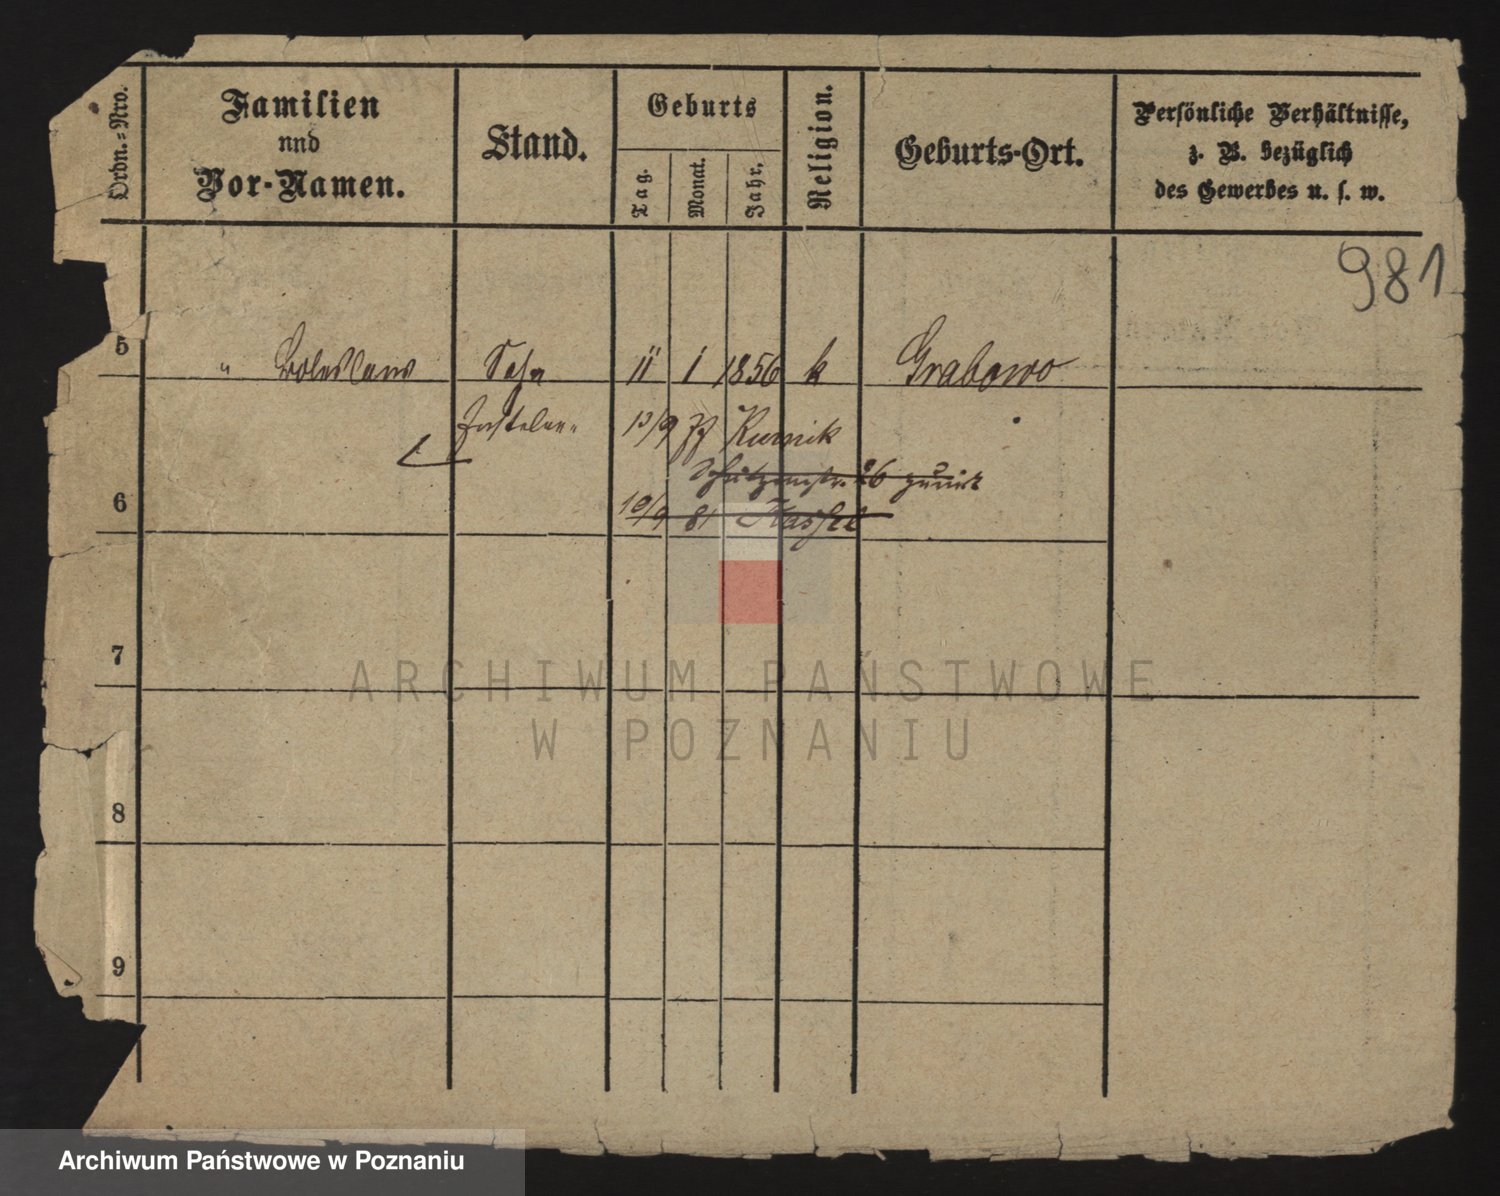 Ordn.-Nro.
Familien
und
Vor-Namen.
Stand.
Geburts
Tag.
Monat.
Jahr.
Religion.
Geburts-Ort.
Persönliche Verhältnisse,
z. B. bezüglich
des Gewerbes u. s. w.
981
5 " Boleslaus Sohn 11 1 1856 k Grabowo
13/9 77 Kurnik
Schützenstr. 26 zurück
6
10/9 81 Kassel
7
ARCHIWUM PAŃSTWOWE
W POZNANIU
8
9
Archiwum Państwowe w Poznaniu